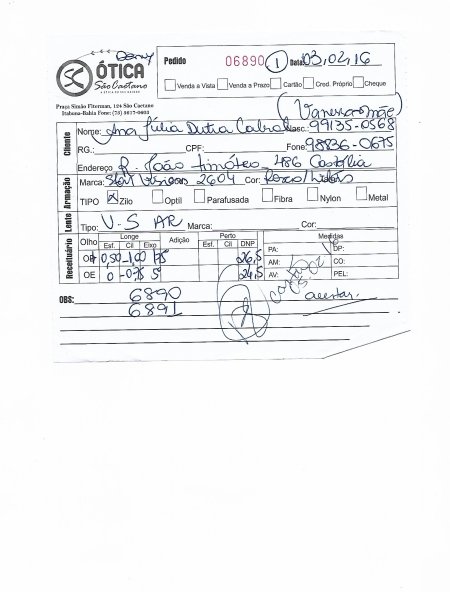 ÓTICA
São Caetano
Praça Simão Fiterman, 124 São Caetano
Itabuna-Bahia Fone: (73) 3617-0403
Pedido 06890 1 Data: 03,02,16
Venda a Vista Venda a Prazo Cartão Cred. Próprio Cheque
(Vanessa mãe)
Cliente
Nome: Ana Júlia Dutra Cabral Nasc. 99135-0568
RG.: CPF: Fone: 98836-0675
Endereço R. João Timóteo, 486 Castália
Armação
Marca: 2604 Cor:
TIPO X Zilo Optil Parafusada Fibra Nylon Metal
Lente
Tipo: V-S AR Marca: Cor:
Receituário
Olho Longe Adição Perto Medidas
Esf. Cil Eixo Esf. Cil DNP
OD 0,50 -1,00 75 26,5 PA: DP:
AM: CO:
OE 0 -0,75 5 24,5 AV: PEL:
OBS: 6890
6891